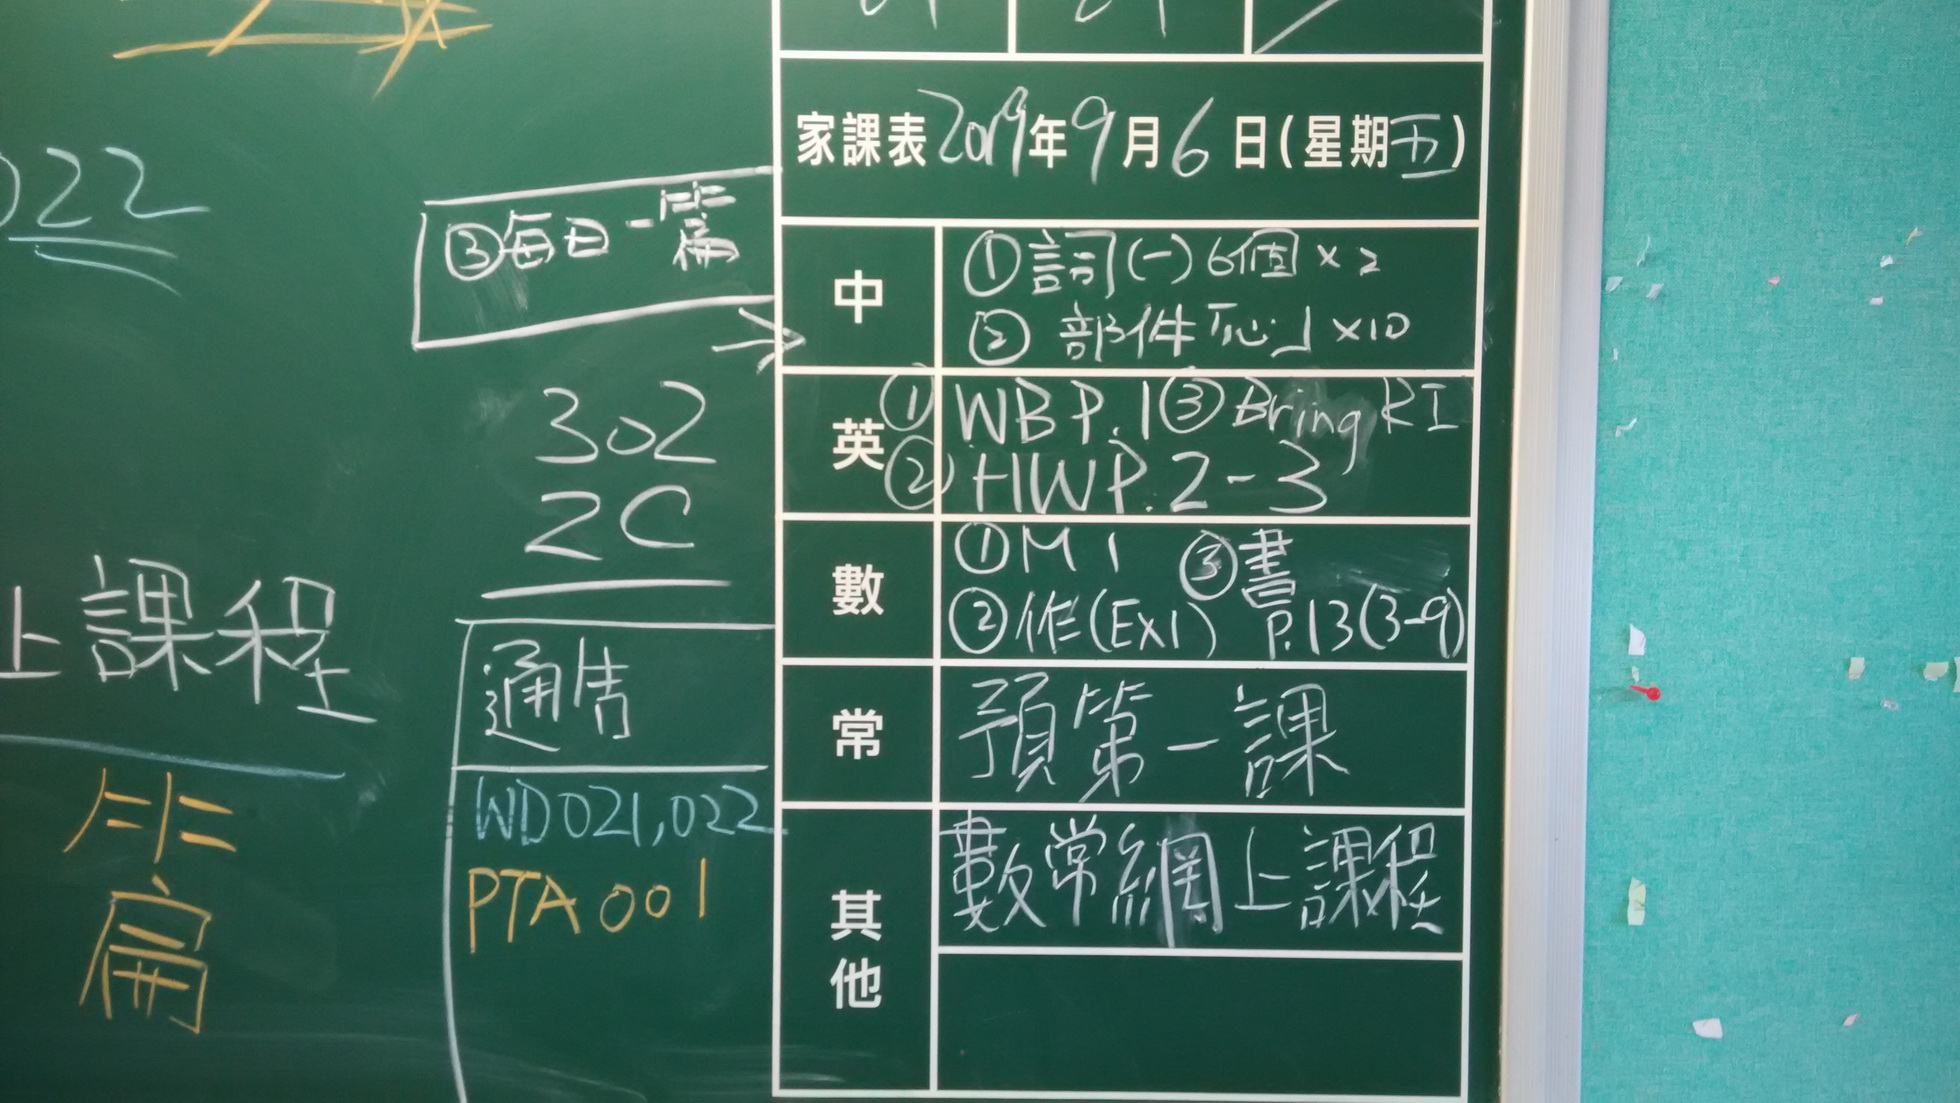 022
上課程
篇
③每日一篇
302
2C
通告
WD021,022
PTA001
家課表2019年9月6日(星期五)
中
①詞(一)6個×2
②部件「心」×10
英
①WBP.1③Bring RI
②HWP.2-3
數
①M1 ③書
②作(Ex1) P.13(3-9)
常
預第一課
其他
數常網上課程